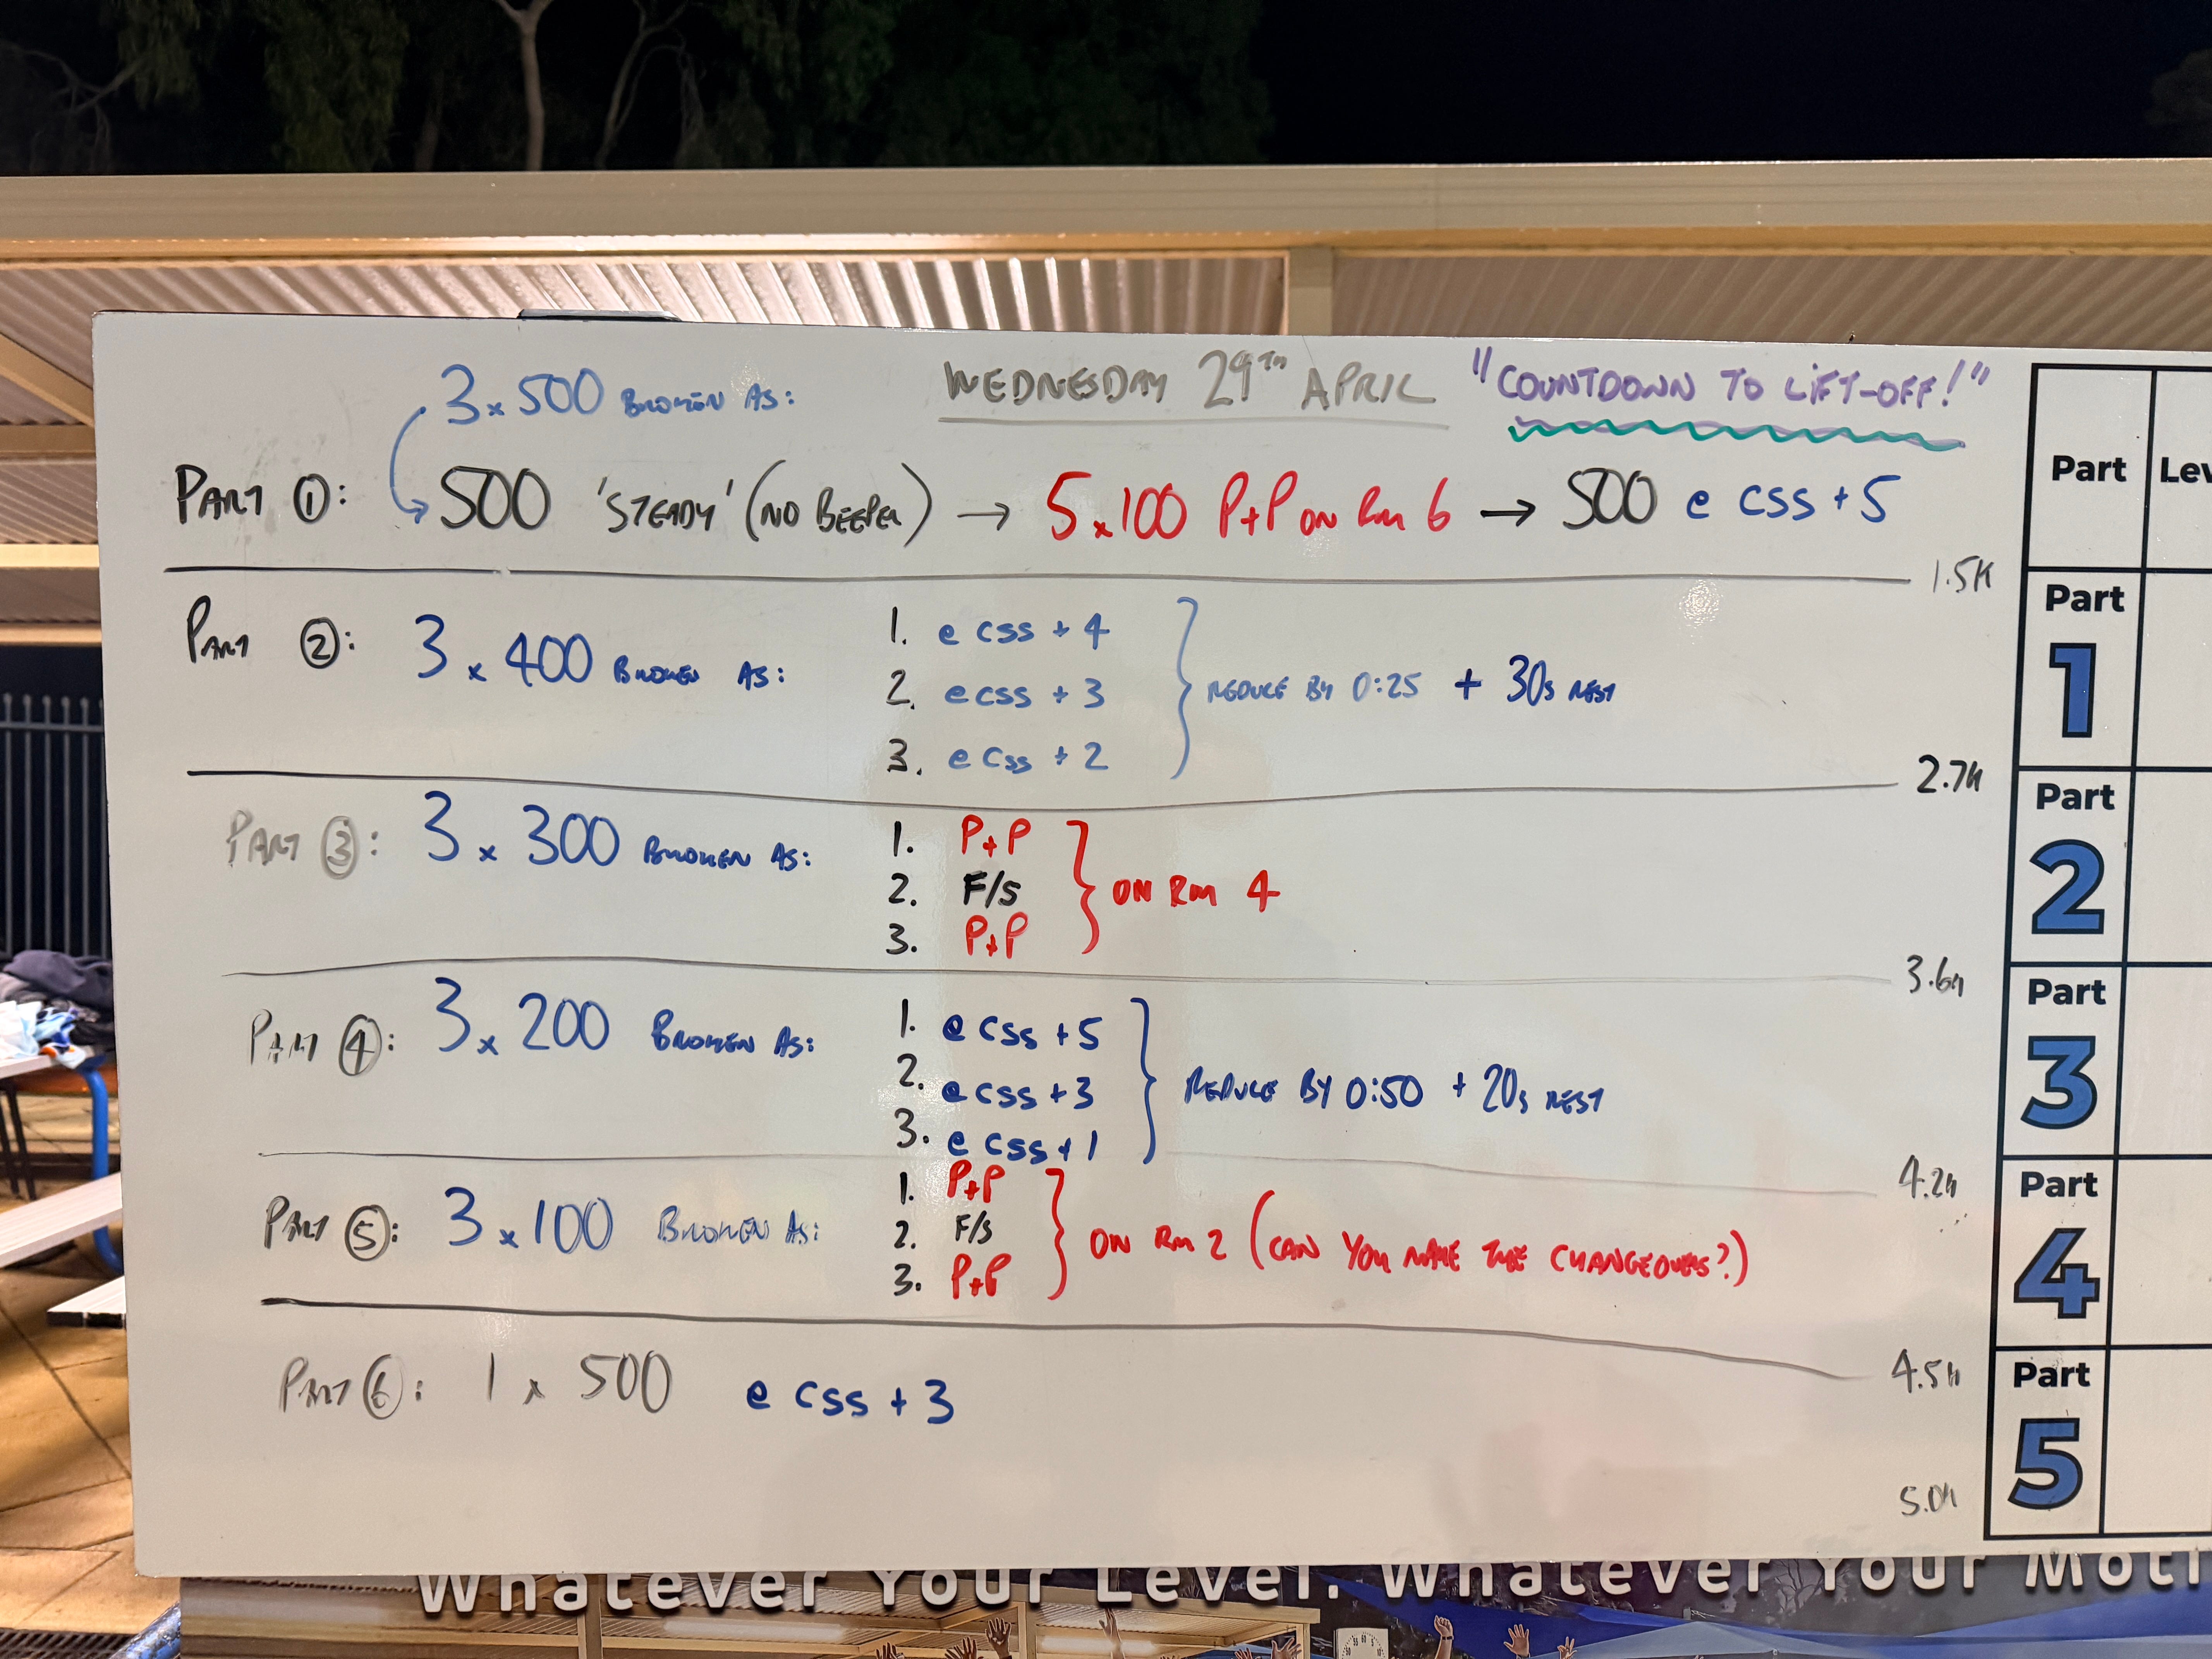 3x500 BROKEN AS:
WEDNESDAY 29TH APRIL
"COUNTDOWN TO LIFT-OFF!"
PART ①: 500 'STEADY' (NO BEEPER) → 5x100 P+P ON RM 6 → 500 @ CSS +5
1.5K
PART ②: 3 x 400 BROKEN AS:
1. @ CSS + 4
2. @ CSS + 3
3. @ CSS + 2
REDUCE BY 0:25 + 30s REST
2.7K
PART ③: 3 x 300 BROKEN AS:
1. P+P
2. F/S
3. P+P
ON RM 4
3.6K
PART ④: 3 x 200 BROKEN AS:
1. @ CSS +5
2. @ CSS +3
3. @ CSS +1
REDUCE BY 0:50 + 20s REST
4.2K
PART ⑤: 3 x 100 BROKEN AS:
1. P+P
2. F/S
3. P+P
ON RM 2 (CAN YOU MAKE THE CHANGEOVERS?)
4.5K
PART ⑥: 1 x 500 @ CSS + 3
5.0K
Part
Part
1
Part
2
Part
3
Part
4
Part
5
Whatever Your Level. Whatever Your